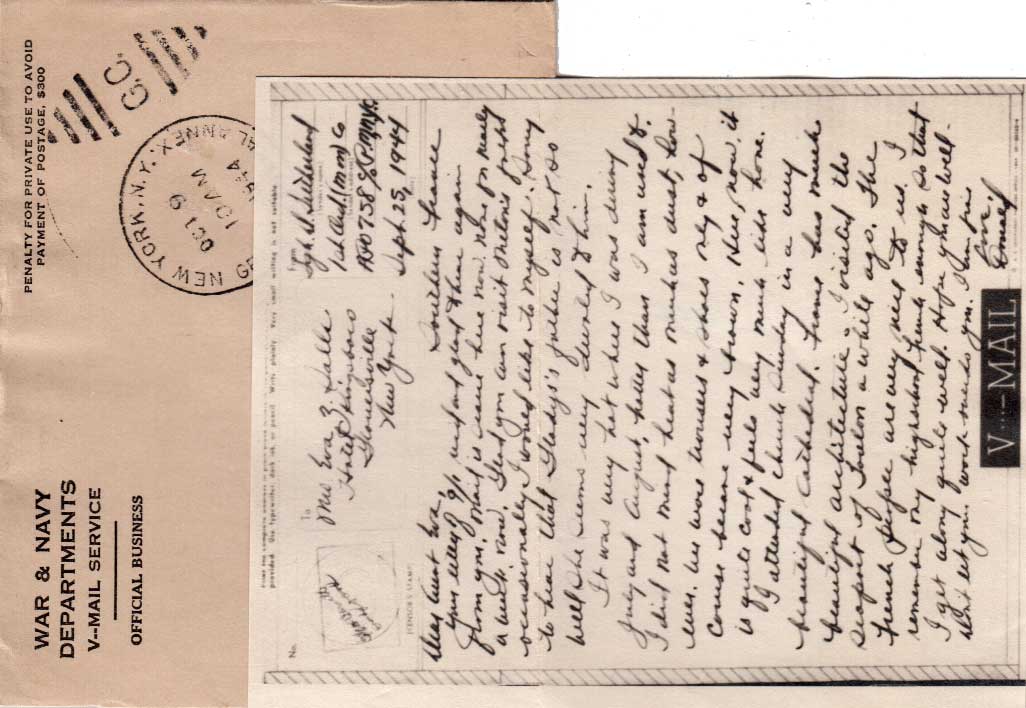 PENALTY FOR PRIVATE USE TO AVOID
PAYMENT OF POSTAGE, $300
G.C.
NEW YORK, N.Y.
OCT 9
10 AM
WAR & NAVY
DEPARTMENTS
V--MAIL SERVICE
OFFICIAL BUSINESS
No.
To
Mrs. Eva Z
Hotel Kingsboro
Gloversville
New York
From
Sept. 25, 1944
(CENSOR'S STAMP)
Southern France
Dear Aunt Eva,
Your letter of
from you. Mail is
a week now. Glad you can visit
occasionally. I would like to myself.
to hear that Gladys's father is not so
well. She seems very devoted to him.
It was very hot where I was during
July and August, hotter than I am used to.
I did not mind heat as much as dust, how-
ever. We wore trousers & shoes only & of
course became very brown. Here, now, it
is quite cool & feels very much like home.
I attended church Sunday in a very
beautiful Cathedral. France has much
beautiful architecture. I visited the
seaport of Toulon a while ago. The
French people are very nice to us. I
remember my highschool French enough so that
I get along quite well. Hope you are well.
Love,
V···–MAIL